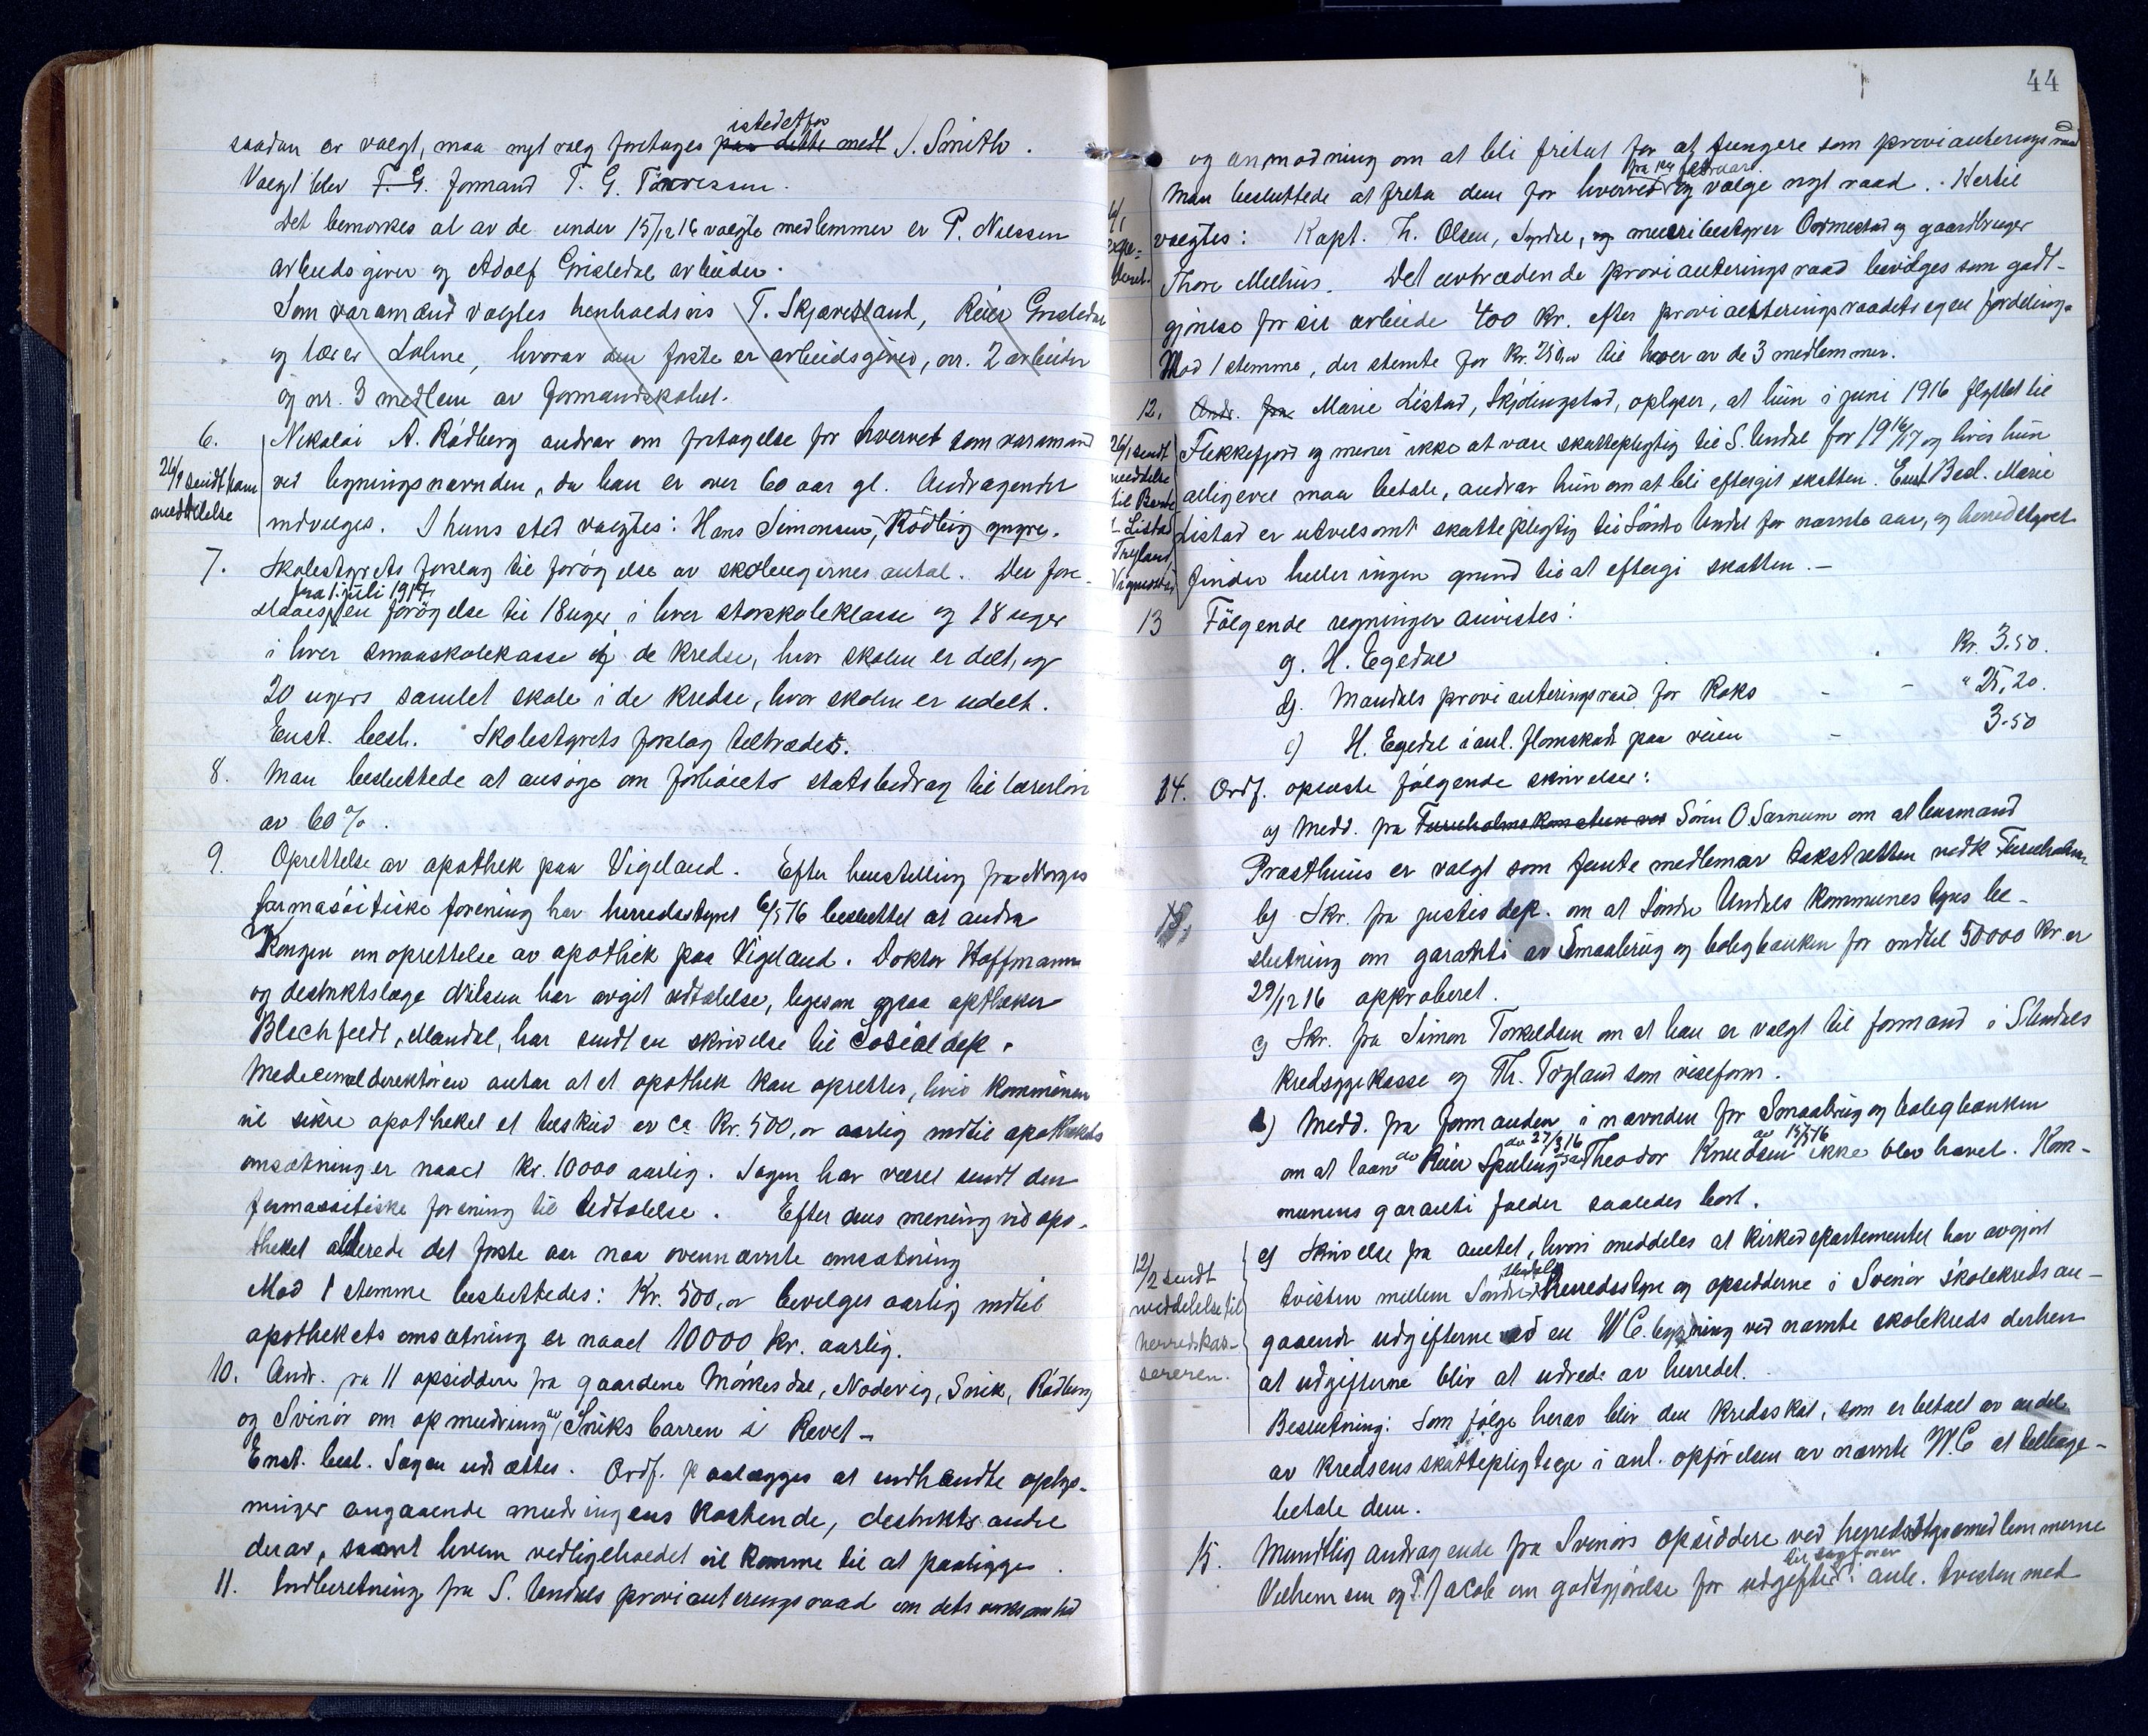 saadan er valgt, maa nyt valg foretages istedetfor paa dette medl J. Smith.
Valgt blev T. G. formand T. G. Tarvessen.
Det bemerkes at av de under 15/12 16 valgte medlemmer er P. Nilssen
arbeidsgiver og Adolf Grisledal arbeider.
Som varamænd valgtes henholdsvis T. Skjævesland, Reier Grisledal
og lærer Lohne, hvorav den første er arbeidsgiver, nr. 2 arbeider
og nr. 3 medlem av formandskabet.
6. Nikolai A. Rödberg andrar om fritagelse for hvervet som varamand
26/1 sendt ham ved ligningsnævnden, da han er over 60 aar gl. Andragendet
meddelelse indvilges. I hans sted valgtes: Hans Simonsen, Rödberg yngre.
7. Skolestyrets forslag til forögelse av skoleugernes antal. Der fore-
slaaes fra 1. juli 1917 en forögelse til 18 uger i hver storskoleklasse og 18 uger
i hver smaaskoleklasse i de kredse, hvor skolen er delt, og
20 ugers samlet skole i de kredse, hvor skolen er udelt.
Enst. besl. Skolestyrets forslag tiltrædes.
8. Man besluttede at ansöge om forhöiets statsbidrag til lærerlön
av 60 %.
9. Oprettelse av apothek paa Vigeland. Efter henstilling fra Norges
farmasöitiske forening har herredsstyret 6/5 16 besluttet at andra
Kongen om oprettelse av apothek paa Vigeland. Doktor Hoffmann
og destriktslæge Nilsen har avgit udtalelse, ligesom ogsaa apotheker
Blechfeldt, Mandal, har sendt en skrivelse til Sosialdep.
Medecinaldirektören antar at et apothek kan oprettes, hvis kommunen
vil sikre apotheket et tilskud av ca kr. 500,00 aarlig indtil apothekets
omsætning er naaet kr. 10000 aarlig. Sagen har været sendt den
farmasöitiske forening til Udtalelse. Efter dens mening vil apo-
theket allerede det første aar naa ovennævnte omsætning
Mod 1 stemme besluttedes: Kr. 500,00 bevilges aarlig indtil
apothekets omsætning er naaet 10000 kr. aarlig.
10. Andr. fra 11 opsiddere fra gaardene Mörkesdal, Nodevig, Snik, Rödberg
og Svinör om opmudring av Sniks barren i Revet -
Enst. besl. Sagen udsættes. Ordf. paalægges at indhente oplys-
ninger angaaende mudringens kostende, destrikts andel
derav, samt hvem vedligeholdet vil komme til at paaligge.
11. Indberetning fra S. Undals provianteringsraad om dets virksomhed
44
og anmodning om at bli fritat for at fungere som provianteringsraad
Man besluttede at frita dem for hvervet fra 1ste februar og vælge nyt raad. Hertil
valgtes: Kapt. Th. Olsen, Syrdal, og meieribestyrer Oormestad og gaardbruger
Thore Melhus. Det avtrædende provianteringsraad bevilges som godt-
expe-
deret.
gjörelse for sit arbeide 400 kr. efter provianteringsraadets egen fordeling.
Mod 1 stemme, der stemte for kr. 250,00 til hver av de 3 medlemmer.
12. Andr. fra Marie Listad, Skjölingstad, oplyser, at hun i juni 1916 flyttet til
26/1 sendt Flekkefjord og mener ikke at være skattepligtig til S. Undal for 1916/17 og hvis hun
meddelse alligevel maa betale, andrar hun om at bli eftergit skatten. Enst. Besl. Marie
Listad er utvilsomt skattepligtig til Söndre Undal for nævnte aar, og herredstyret
finder heller ingen grund til at eftergi skatten. -
13 Fölgende regninger anvistes:
a. H. Egedal Kr. 3.50.
b. Mandals provianteringsraad for Koks - - " 25,20.
c) H. Egedal i anl. flomskade paa veien - 3.50
14. Ordf. oplæste fölgende skrivelser:
a) Medd. fra Fureholmskomiteen ved Sörin O Særnum om at lensmand
Præsthus er valgt som femte medlem av takstretten vedk Fureholmen
15. b) Skr. fra justisdep. om at Söndre Undals kommunestyres be-
slutning om garanti av Smaabrug og boligbanken for indtil 50000 kr. er
29/12 16 approberet.
c) Skr. fra Simon Torkeldsen om at han er valgt til formand i S. Undals
kredssygekasse og Th. Tryland som viseform.
d) Medd. fra formanden i nævnden for Smaabrug og boligbanken
om at laan av Reier Spilling av 27/3 16 og Theodor Knudsen av 15/5 16 ikke blev hævet. Kom-
munens garanti falder saaledes bort.
12/2 sendt
meddelelse til
herredskas-
sereren.
e) Skrivelse fra amtet, hvori meddeles at kirkedepartementet har avgjort
tvisten mellem Söndre Undals Herredsstyre og opsidderne i Svinör skolekreds an-
gaaende udgifterne ved en W.C. bygning ved nævnte skolekreds derhen
at udgifterne blir at udrede av herredet.
Beslutning: Som fölge herav blir den Kredsskat, som er betalt av endel
av kredsens skattepligtige i anl. opförelsen av nævnte W.C. at tilbage-
betale dem.
15. Mundtlig andragende fra Svinörs opsiddere ved herredsstyremedlemmerne
Vilhemsen og P. Jacob om godtgjörelse for udgifter til sagförer i anl. tvisten med